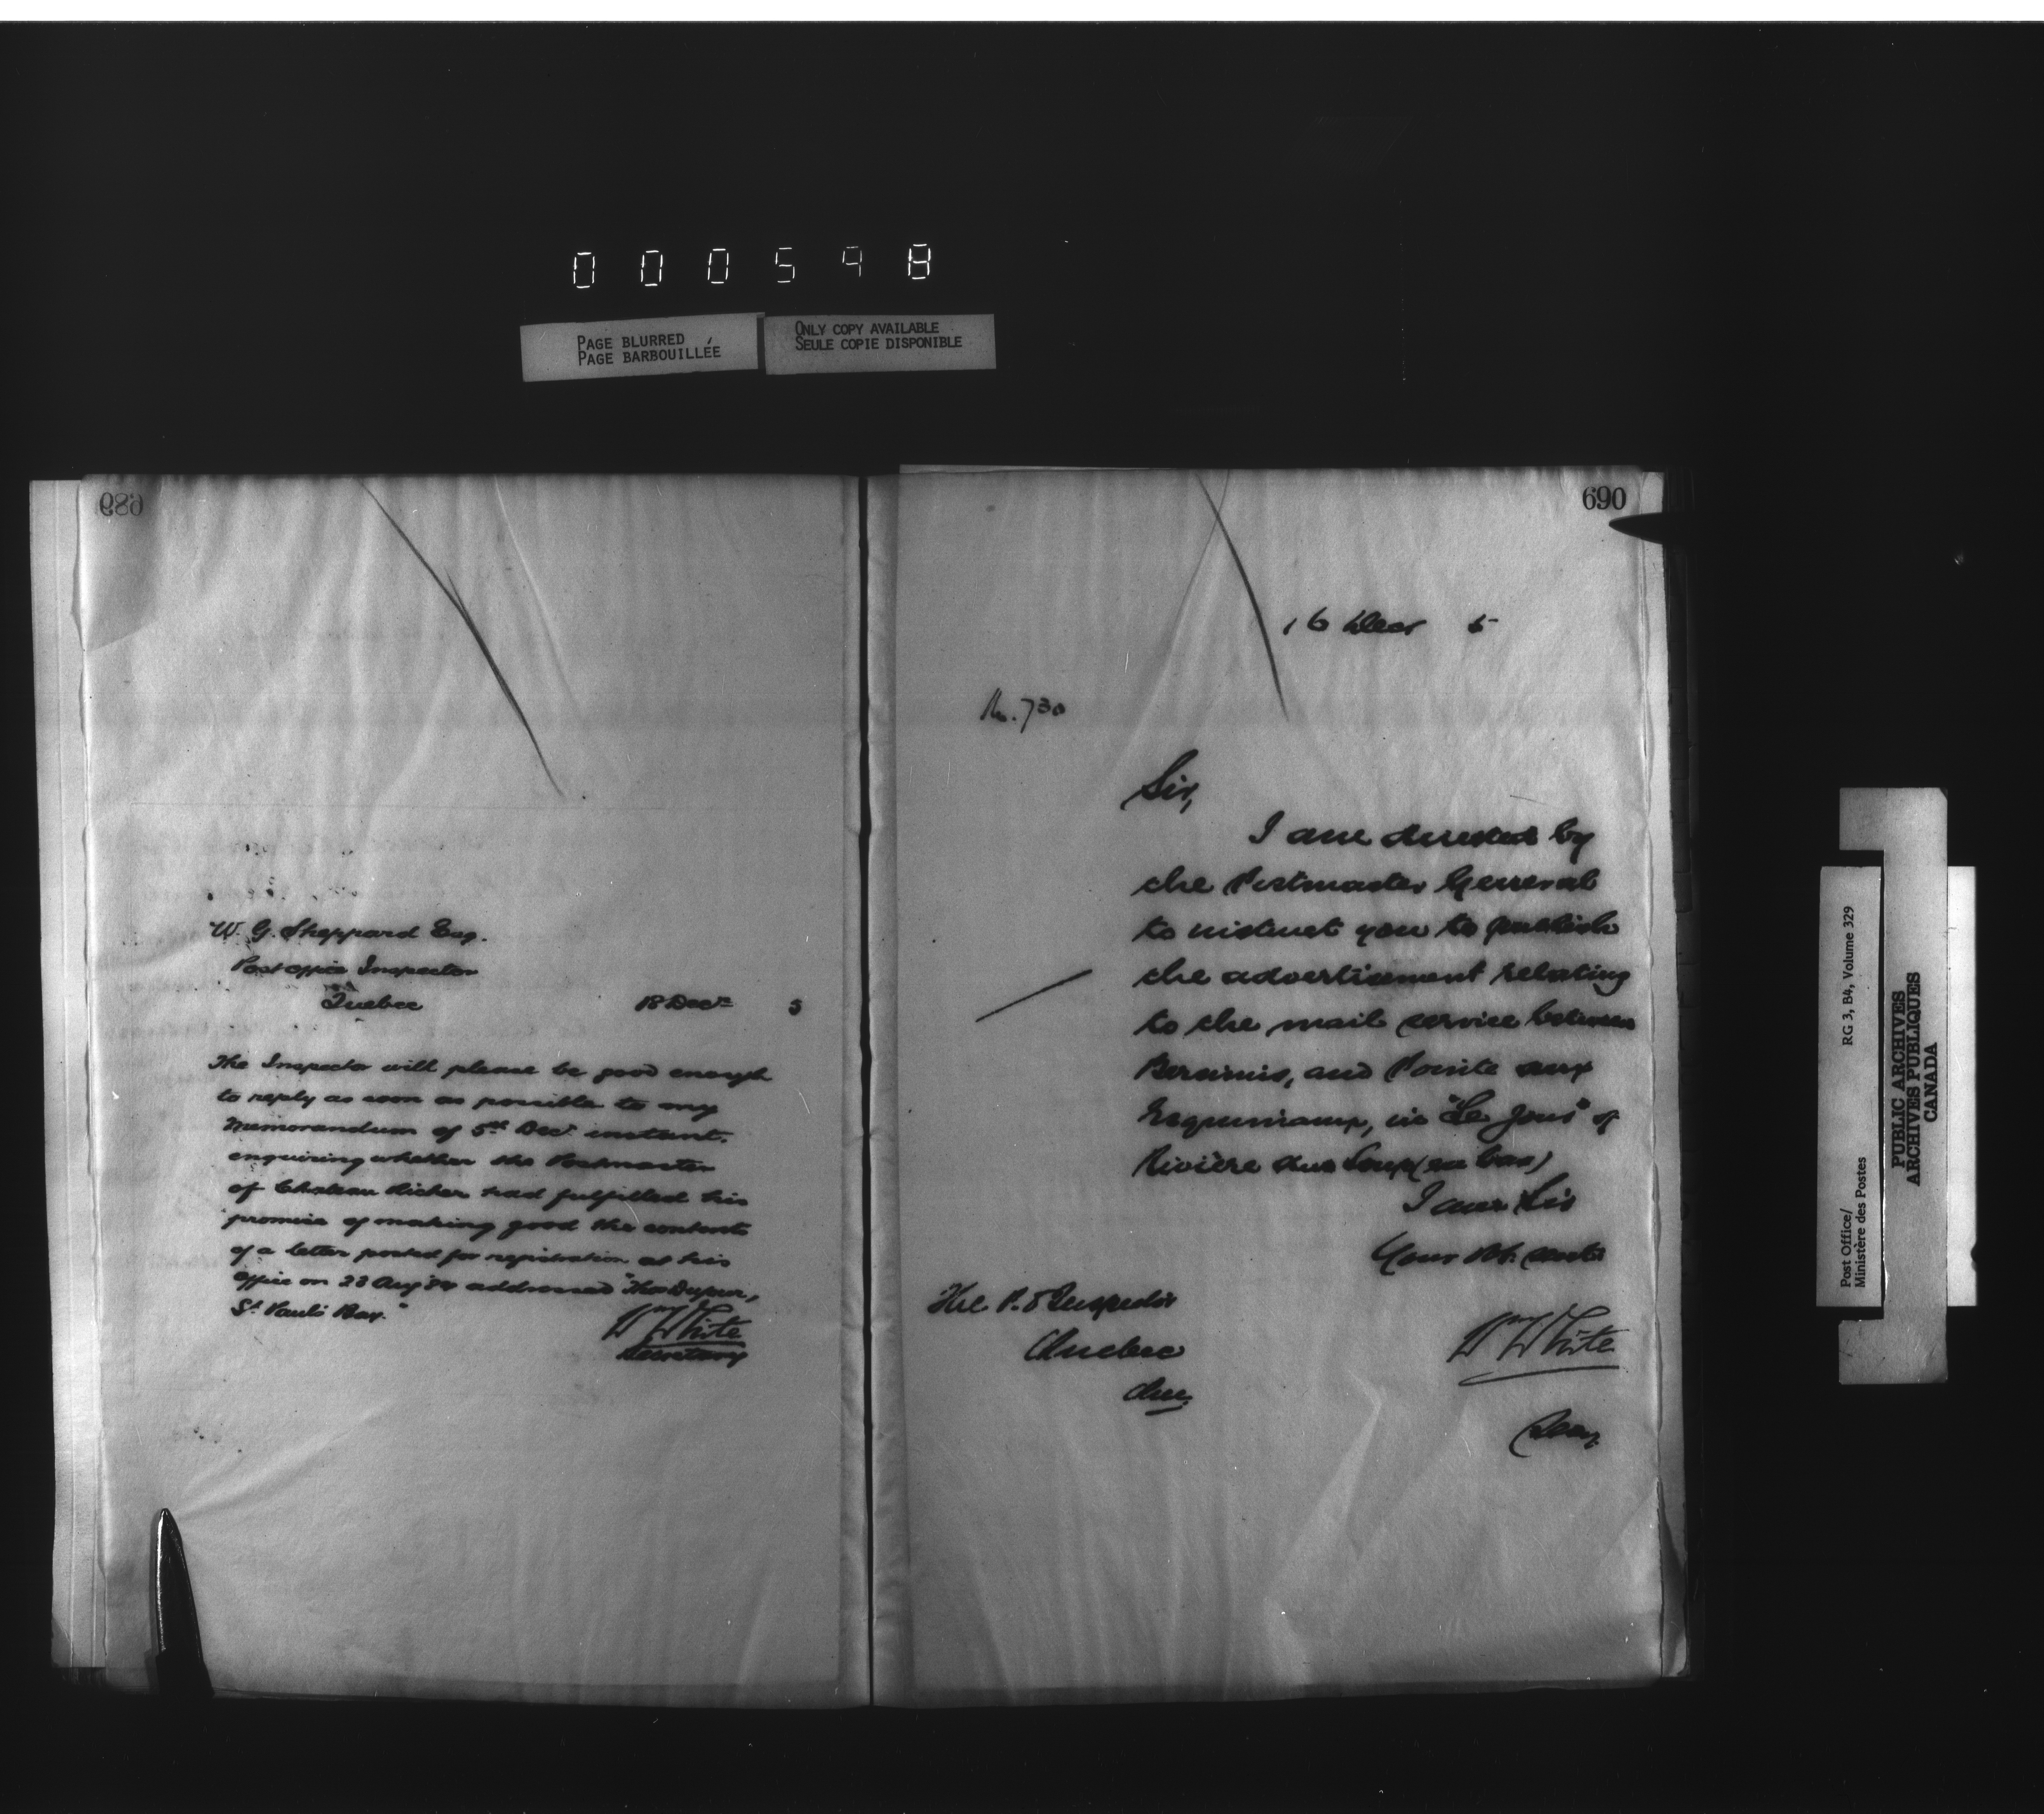 000598
PAGE BLURRED
PAGE BARBOUILLÉE
ONLY COPY AVAILABLE
SEULE COPIE DISPONIBLE
689
W. G. Sheppard Esq.
Post office Inspector
Quebec 18 Decr 5
The Inspector will please be good enough
to reply as soon as possible to my
Memorandum of 5th Decr instant.
enquiring whether the Postmaster
of Chateau Richer had fulfilled his
promise of making good the contents
of a letter posted for registration at his
office on 28 Aug '84 addressed "Thos
St. Paul's Bay."
Wm White
Secretary
690
16 Decr 5
No. 730
Sir,
I am directed by
the Postmaster General
to instruct you to publish
the advertisement relating
to the mail service between
Bersimis, and Pointe aux
Esquimaux, in "Le Jour" of
Rivière du Loup (en bas)
I am Sir
Your Ob. Servt
The P. O Inspector
Quebec
Que.
Wm White
Secy.
Post Office/ RG 3, B4, Volume 329
Ministère des Postes
PUBLIC ARCHIVES
ARCHIVES PUBLIQUES
CANADA